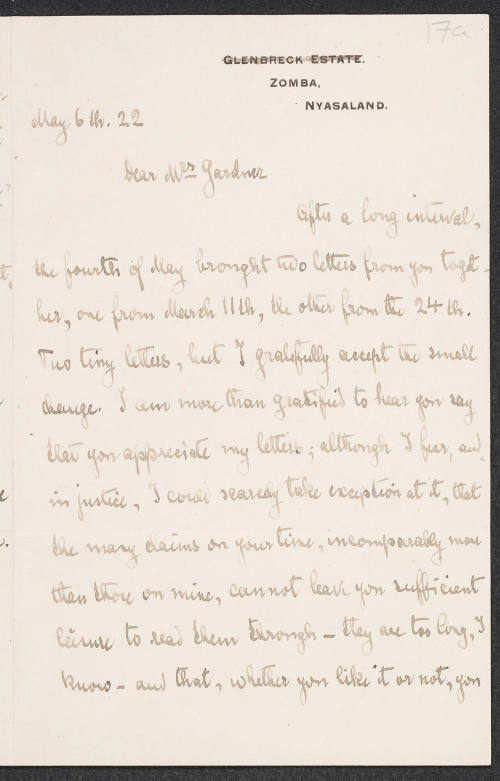 17a
GLENBRECK ESTATE.
ZOMBA,
NYASALAND.
May 6th. 22
Dear Mrs Gardner
After a long interval,
the fourth of May brought two letters from you togeth-
her, one from March 11th, the other from the 24th.
Two tiny letters, but I gratefully accept the small
change. I am more than gratified to hear you say
that you appreciate my letters; although I fear, and,
in justice, I could scarcely take exception at it, that
the many claims on your time, incomparably more
than those on mine, cannot leave you sufficient
leisure to read them through – they are too long, I
know – and that, whether you like it or not, you